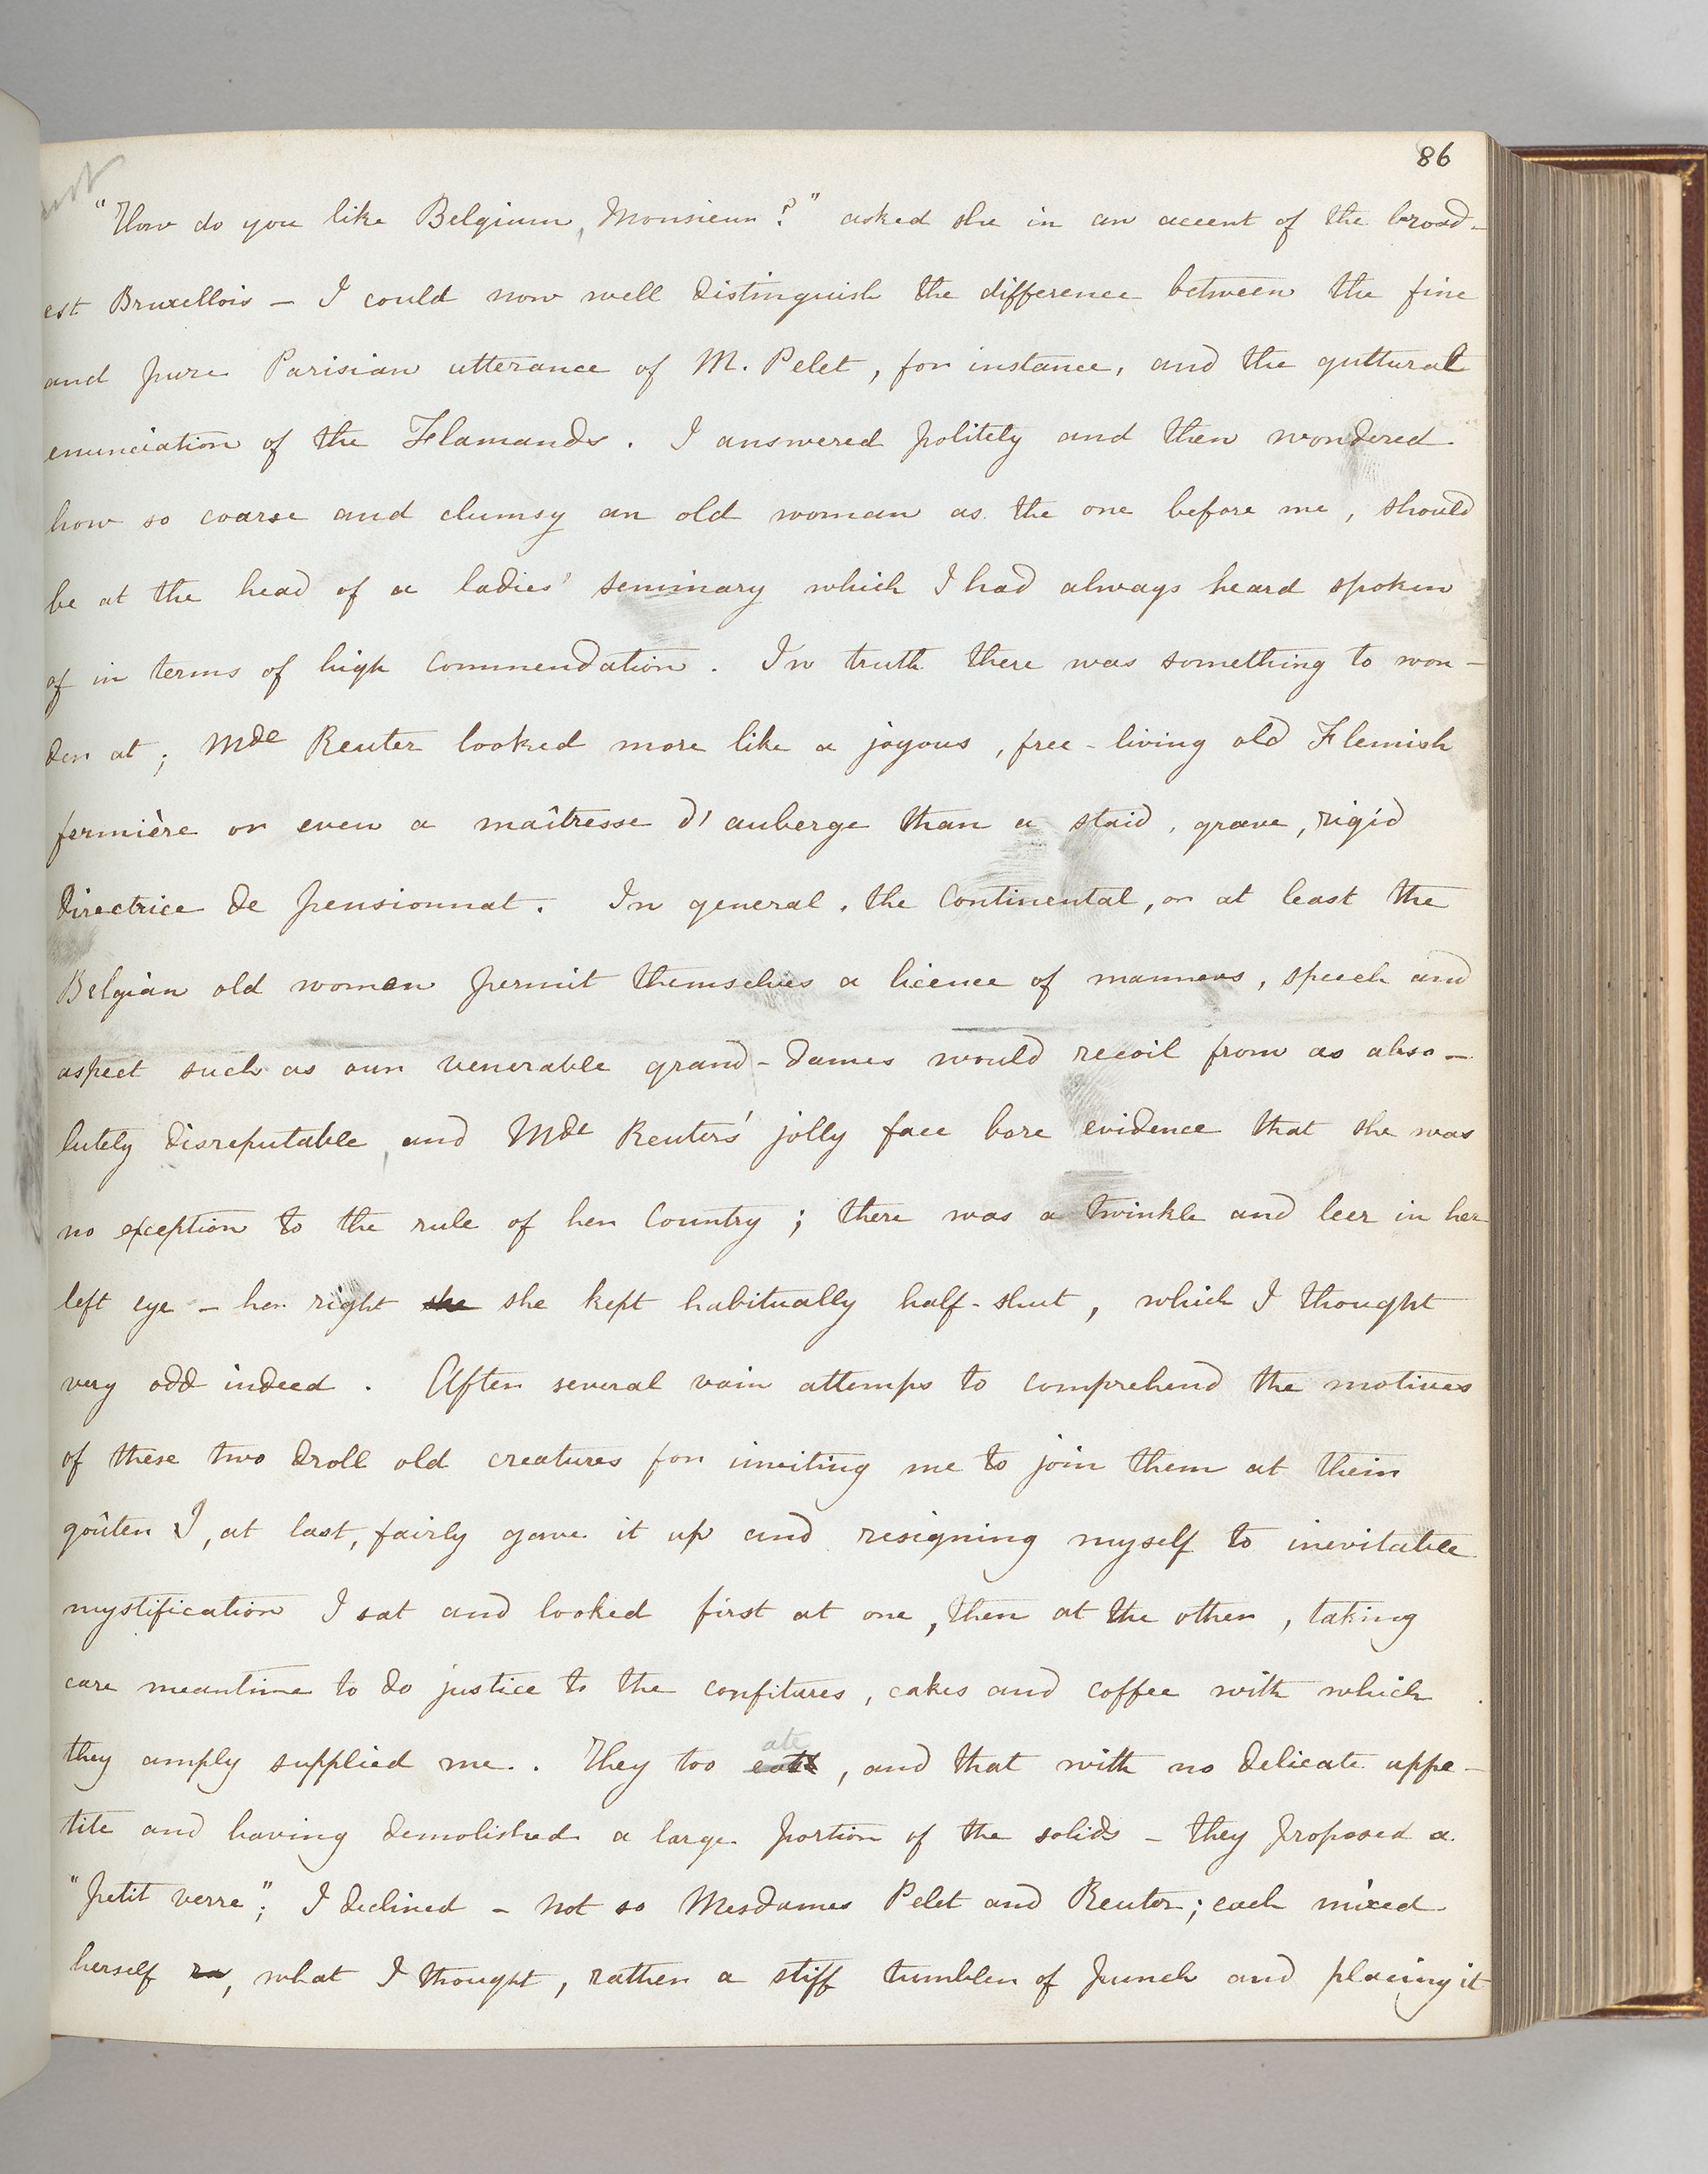 86
"How do you like Belgium, Monsieur?" asked she in an accent of the broad-
est Bruxellois — I could now well distinguish the difference between the fine
and pure Parisian utterance of M. Pelet, for instance, and the guttural
enunciation of the Flamands. I answered politely and then wondered
how so coarse and clumsy an old woman as the one before me, should
be at the head of a ladies' seminary which I had always heard spoken
of in terms of high commendation. In truth there was something to won-
der at; Mde Reuter looked more like a joyous, free-living old Flemish
fermière or even a maîtresse d'auberge than a staid, grave, rigid
directrice de pensionnat. In general, the continental, or at least the
Belgian old women permit themselves a licence of manners, speech and
aspect such as our venerable grand-dames would recoil from as abso-
lutely disreputable, and Mde Reuter's jolly face bore evidence that she was
no exception to the rule of her country; there was a twinkle and leer in her
left eye — her right she she kept habitually half-shut, which I thought
very odd indeed. After several vain attemps to comprehend the motives
of these two droll old creatures for inviting me to join them at their
goûter I, at last, fairly gave it up and resigning myself to inevitable
mystification I sat and looked first at one, then at the other, taking
care meantime to do justice to the confitures, cakes and coffee with which
they amply supplied me. They too ate, and that with no delicate appe-
tite and having demolished a large portion of the solids — they proposed a
"petit verre"; I declined — not so Mesdames Pelet and Reuter; each mixed
herself ra, what I thought, rather a stiff tumbler of punch and placing it